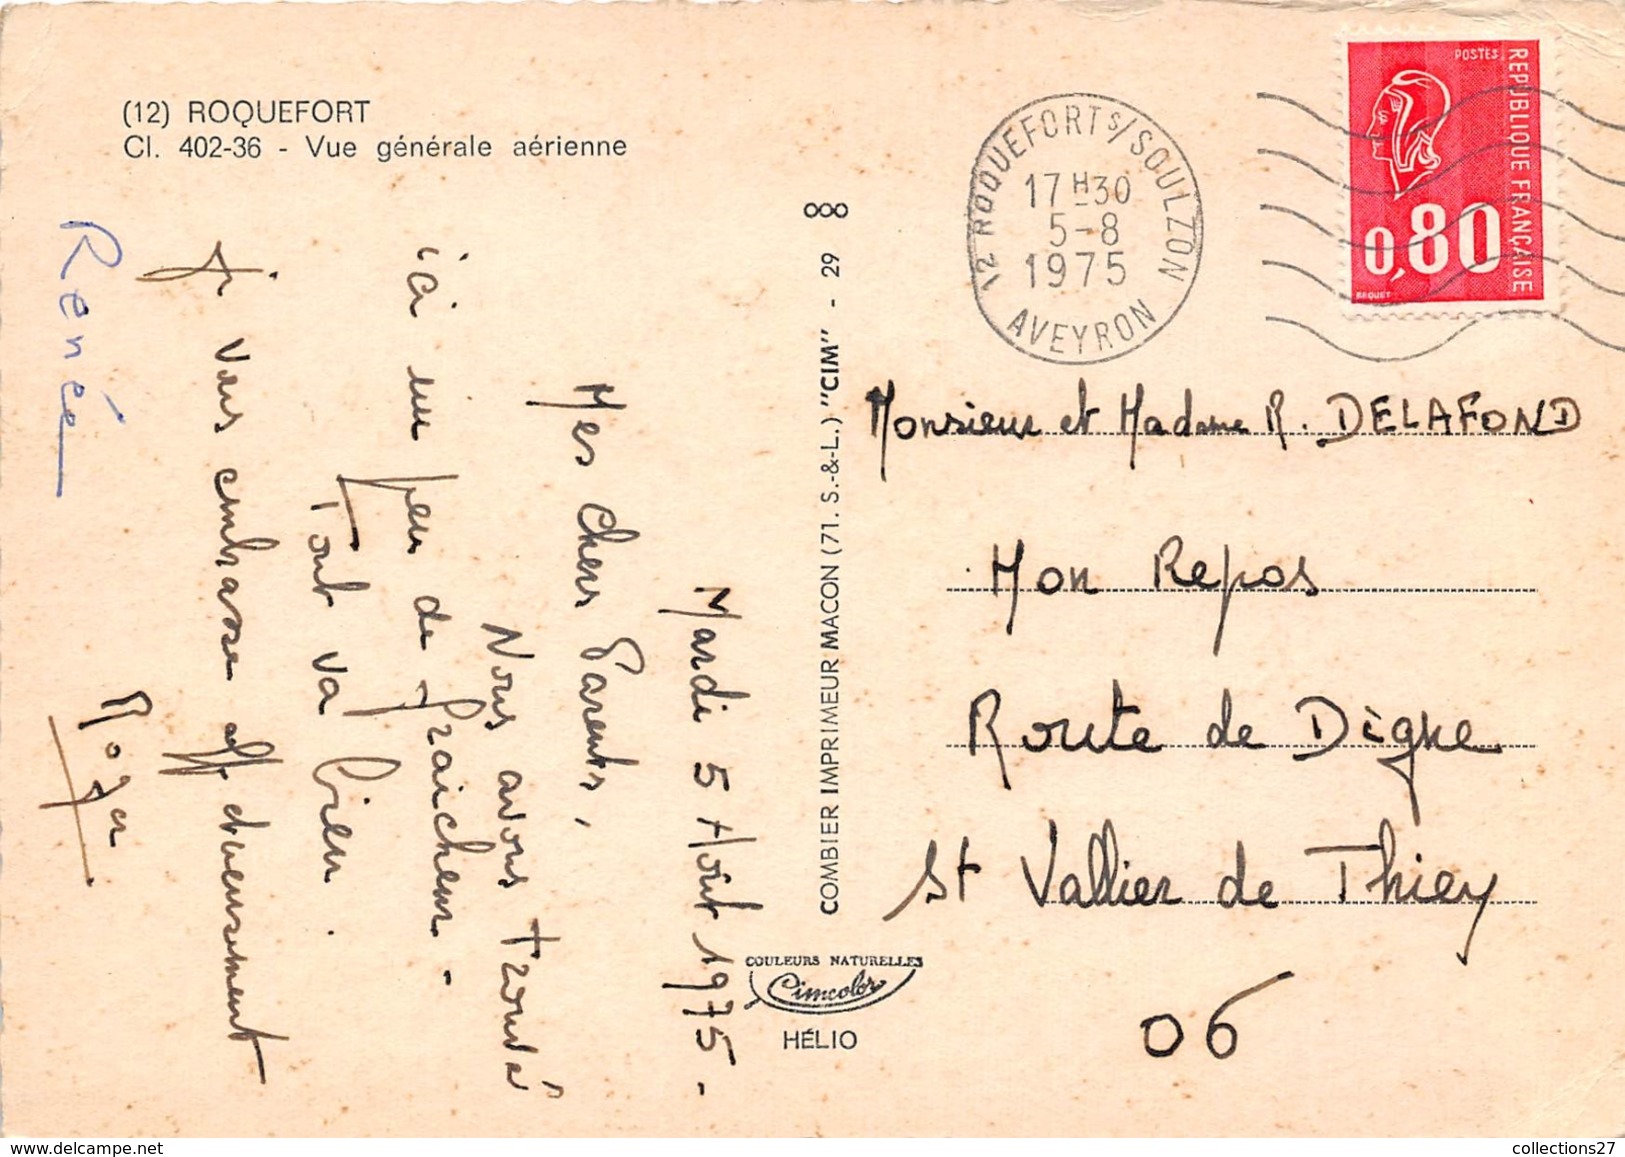 (12) ROQUEFORT
Cl. 402-36 - Vue générale aérienne
Mardi 5 Août 1975-
Mes chers Parents,
Nous avons trouvé
ici un peu de fraicheur-
Tout va bien.
Je vous embrasse affectueusement
Roger
Renée
COMBIER IMPRIMEUR MACON (71. S.-&-L.) "CIM" - 29 000
COULEURS NATURELLES
Cimcolor
HÉLIO
12 ROQUEFORT S/SOULZON
17H30
5-8
1975
AVEYRON
POSTES
REPUBLIQUE FRANÇAISE
0,80
BEQUET
Monsieur et Madame R. DELAFOND
Mon Repos
Route de Digne
St Vallier de Thiey
06
collections27